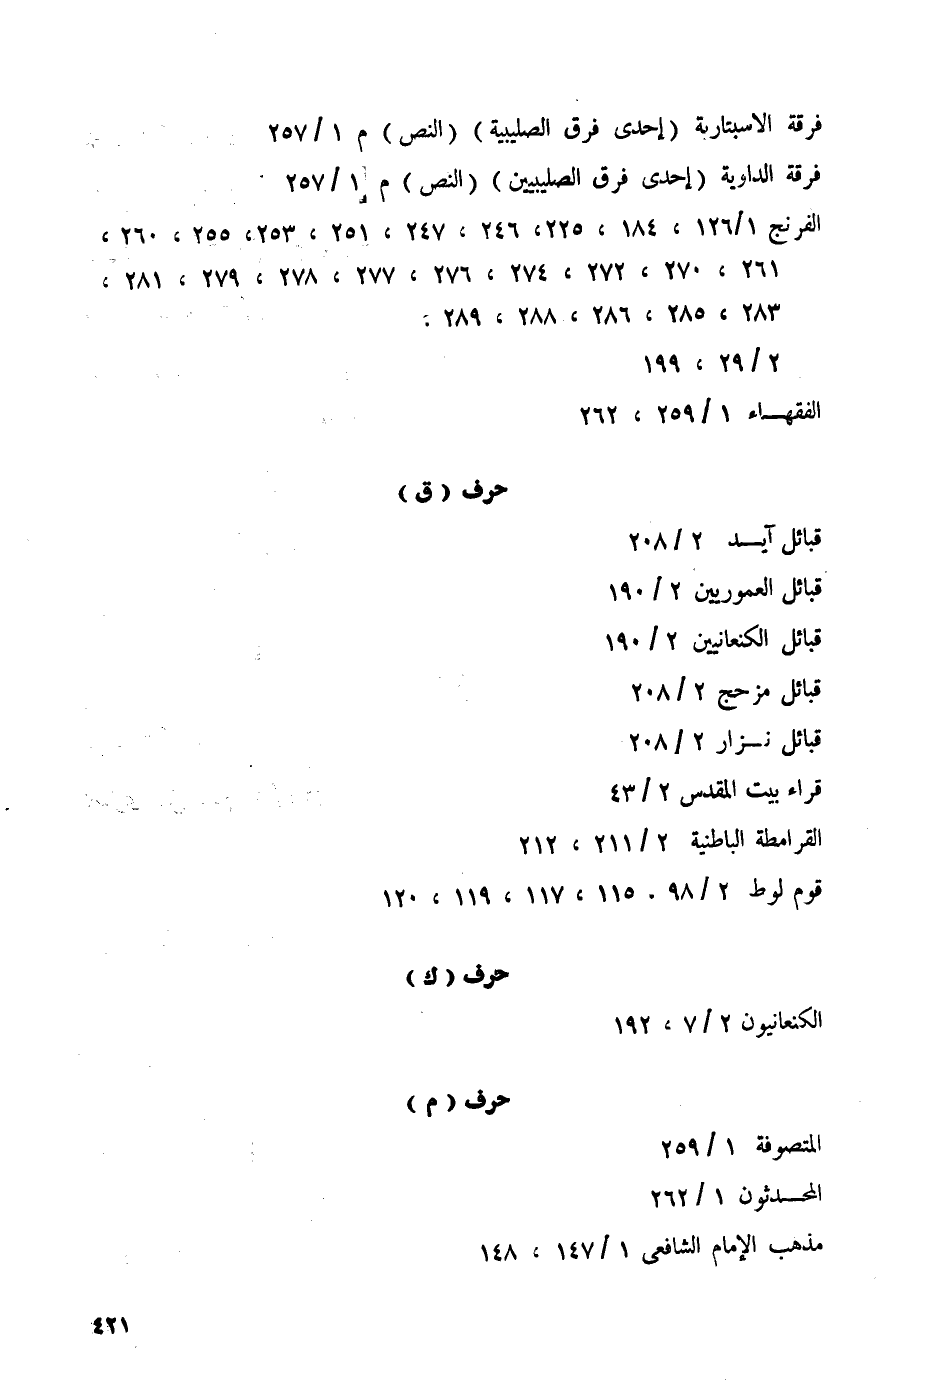 فرقة الاسبتارية (إحدى فرق الصليبية) (النص) م ١ / ٢٥٧
فرقة الداوية (إحدى فرق الصليبيين) (النص) م ١ / ٢٥٧
الفرنج ١ /١٢٦ ، ١٨٤ ، ٢٢٥، ٢٤٦ ، ٢٤٧ ، ٢٥١ ، ٢٥٣، ٢٥٥ ، ٢٦٠ ،
٢٦١ ، ٢٧٠ ، ٢٧٢ ، ٢٧٤ ، ٢٧٦ ، ٢٧٧ ، ٢٧٨ ، ٢٧٩ ، ٢٨١ ،
٢٨٣ ، ٢٨٥ ، ٢٨٦ ، ٢٨٨ ، ٢٨٩ .
٢ / ٢٩ ، ١٩٩
الفقهـــاء ١ / ٢٥٩ ، ٢٦٢
حرف (ق)
قبائل آيـــد ٢ / ٢٠٨
قبائل العموريين ٢ / ١٩٠
قبائل الكنعانيين ٢ / ١٩٠
قبائل مزحج ٢ / ٢٠٨
قبائل نــزار ٢ / ٢٠٨
قراء بيت المقدس ٢ / ٤٣
القرامطة الباطنية ٢ / ٢١١ ، ٢١٢
قوم لوط ٢ / ٩٨ . ١١٥ ، ١١٧ ، ١١٩ ، ١٢٠
حرف (ك)
الكنعانيون ٢ / ٧ ، ١٩٢
حرف (م)
المتصوفة ١ / ٢٥٩
المحـــدثون ١ / ٢٦٢
مذهب الإمام الشافعى ١ / ١٤٧ ، ١٤٨
٤٢١